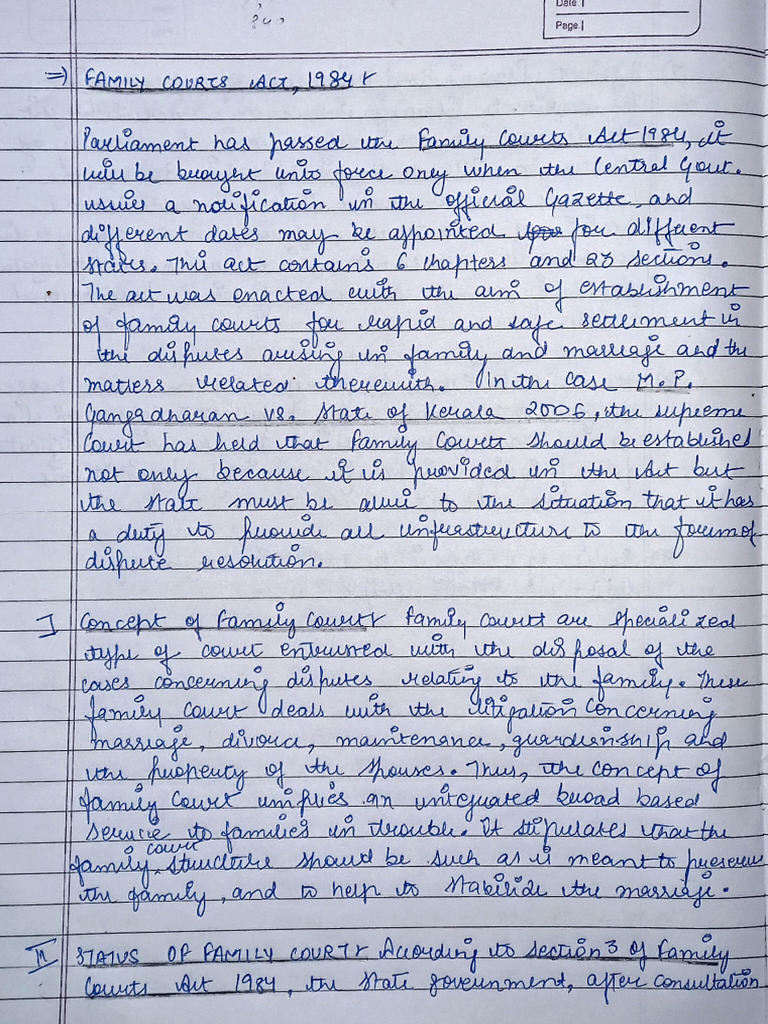 Date
Page
=) FAMILY COURTS ACT, 1984 :-
Parliament has passed the Family Courts Act 1984, it
will be brought into force only when the Central Govt.
issues a notification in the official Gazette and
different dates may be appointed for different
states. This act contains 6 chapters and 23 sections.
The act was enacted with the aim of establishment
of family courts for rapid and safe settlement in
the disputes arising in family and marriage and the
matters related therewith. In the case M.P.
Gangadharan vs. State of Kerala 2006, the supreme
Court has held that family Courts should be established
not only because it is provided in the Act but
the state must be alive to the situation that it has
a duty to provide all infrastructure to the forum of
dispute resolution.
I Concept of Family Court :- family courts are specialized
type of court entrusted with the disposal of the
cases concerning disputes relating to the family. These
family court deals with the litigation concerning
marriage, divorce, maintenance, guardianship and
the property of the spouses. Thus, the concept of
family court implies an integrated broad based
service to families in trouble. It stipulates that the
family court structure should be such as is meant to preserve
the family, and to help to stabilide the marriage.
II STATUS OF FAMILY COURT :- According to section 3 of Family
Courts Act 1984, the state government, after consultation